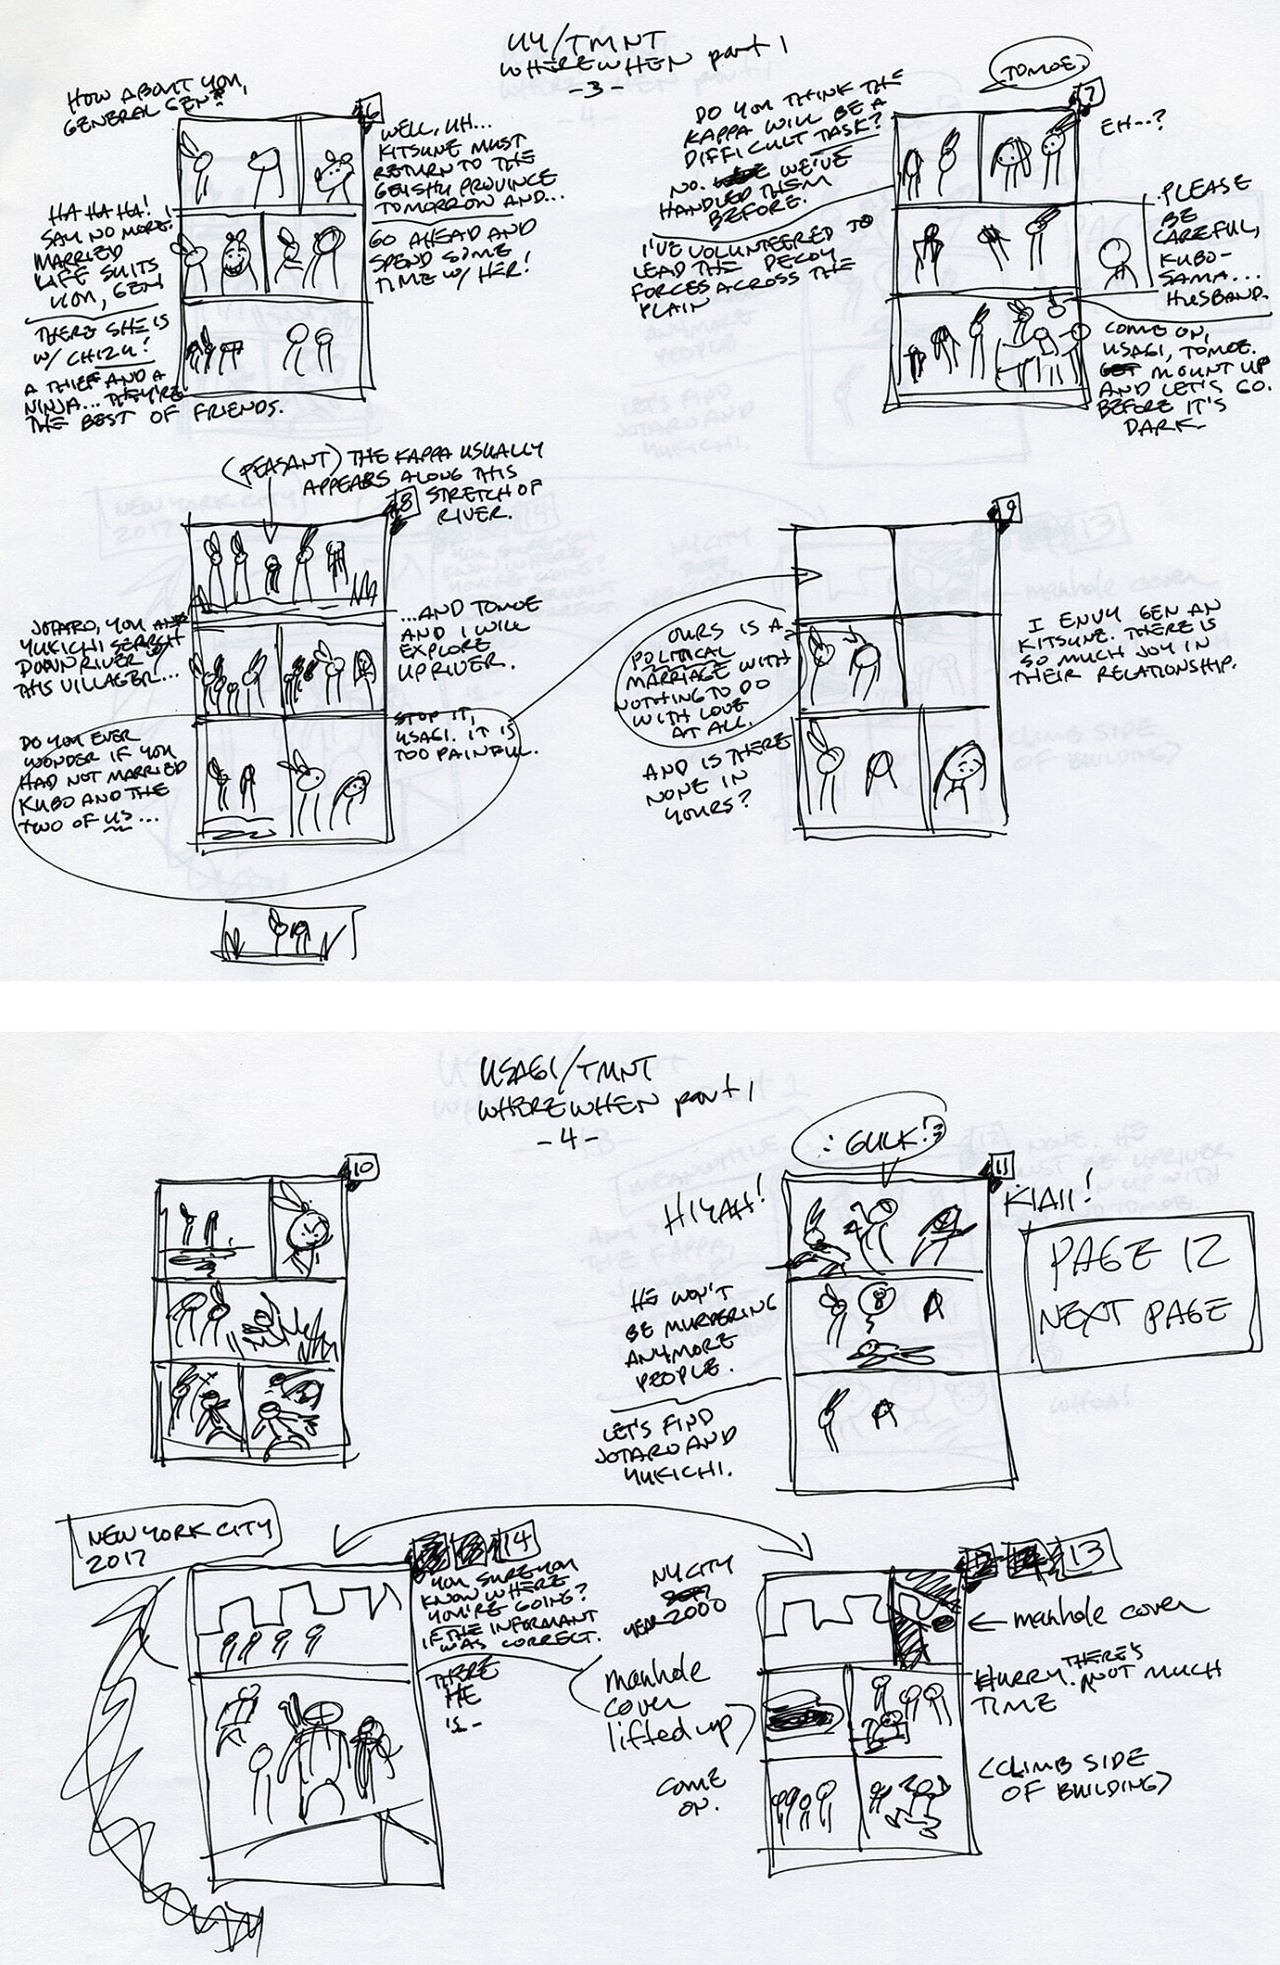 UY/TMNT
WHEREWHEN part 1
-3-
HOW ABOUT YOU,
GENERAL GEN?
6
WELL, UH...
KITSUNE MUST
RETURN TO THE
GEISHU PROVINCE
TOMORROW AND...
GO AHEAD AND
SPEND SOME
TIME W/ HER!
HA HA HA!
SAY NO MORE!
MARRIED
LIFE SUITS
YOU, GEN!
THERE SHE IS
W/ CHIZU!
A THIEF AND A
NINJA... THEY'RE
THE BEST OF FRIENDS.
TOMOE.
7
DO YOU THINK THE
KAPPA WILL BE A
DIFFICULT TASK?
NO. WE'VE
HANDLED THEM
BEFORE.
I'VE VOLUNTEERED TO
LEAD THE DECOY
FORCES ACROSS THE
PLAIN
EH--?
PLEASE
BE
CAREFUL,
KUBO-
SAMA...
HUSBAND.
COME ON,
USAGI, TOMOE.
MOUNT UP
AND LET'S GO.
BEFORE IT'S
DARK.
(PEASANT) THE KAPPA USUALLY
APPEARS ALONG THIS
STRETCH OF
RIVER.
8
JOTARO, YOU AND
YUKICHI SEARCH
DOWN RIVER W/
THIS VILLAGER...
...AND TOMOE
AND I WILL
EXPLORE
UPRIVER.
DO YOU EVER
WONDER IF YOU
HAD NOT MARRIED
KUBO AND THE
TWO OF US...
STOP IT,
USAGI. IT IS
TOO PAINFUL.
9
OURS IS A
POLITICAL
MARRIAGE WITH
NOTHING TO DO
WITH LOVE
AT ALL.
AND IS THERE
NONE IN
YOURS?
I ENVY GEN AN
KITSUNE. THERE IS
SO MUCH JOY IN
THEIR RELATIONSHIP.
USAGI/TMNT
WHEREWHEN part 1
-4-
10
: GULK!:
11
HIYAH!
KIAII!
HE WON'T
BE MURDERING
ANYMORE
PEOPLE.
LET'S FIND
JOTARO AND
YUKICHI.
PAGE 12
NEXT PAGE
NEW YORK CITY
2017
14
YOU SURE YOU
KNOW WHERE
YOU'RE GOING?
IF THE INFORMANT
WAS CORRECT.
THERE
HE
IS-
13
NY CITY
YEAR 2000
← manhole cover
HURRY. THERE'S
NOT MUCH
TIME
manhole
cover
lifted up
COME
ON.
(CLIMB SIDE
OF BUILDING)